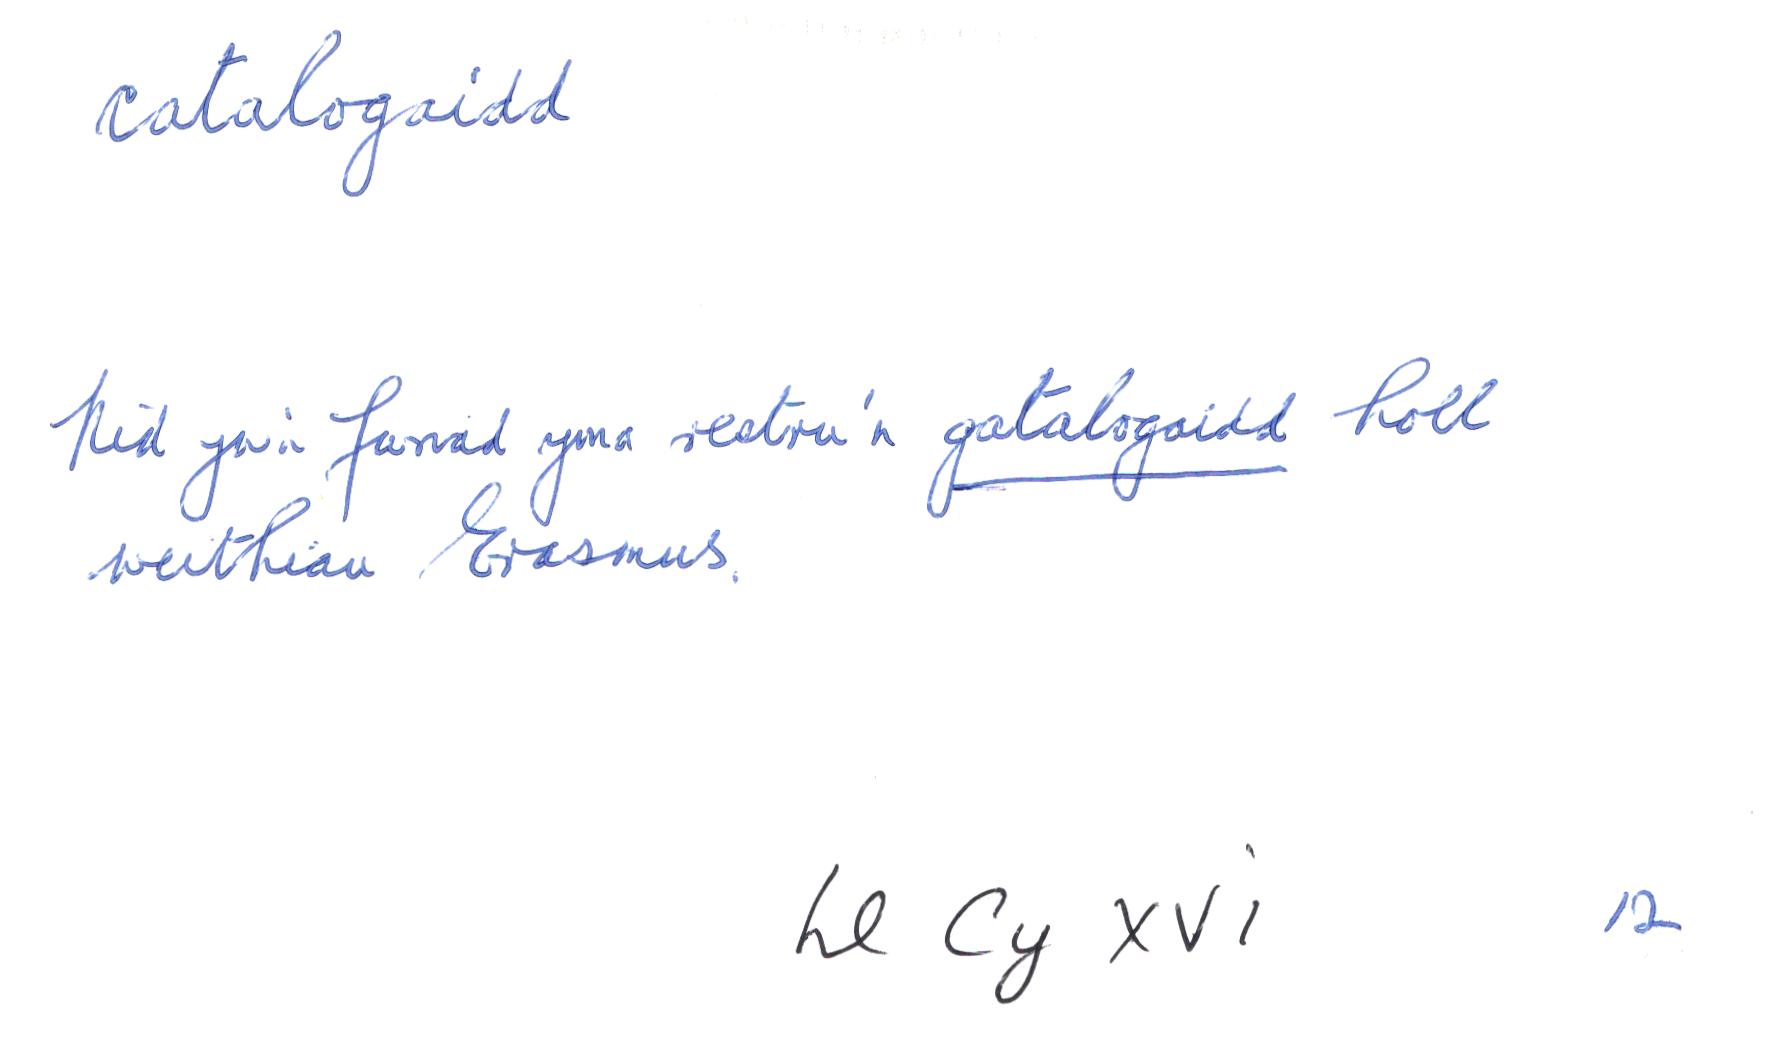 catalogaidd
Nid yw'n fwriad yma restru'n gatalogaidd holl
weithiau Erasmus.
Ll Cy XVi 12